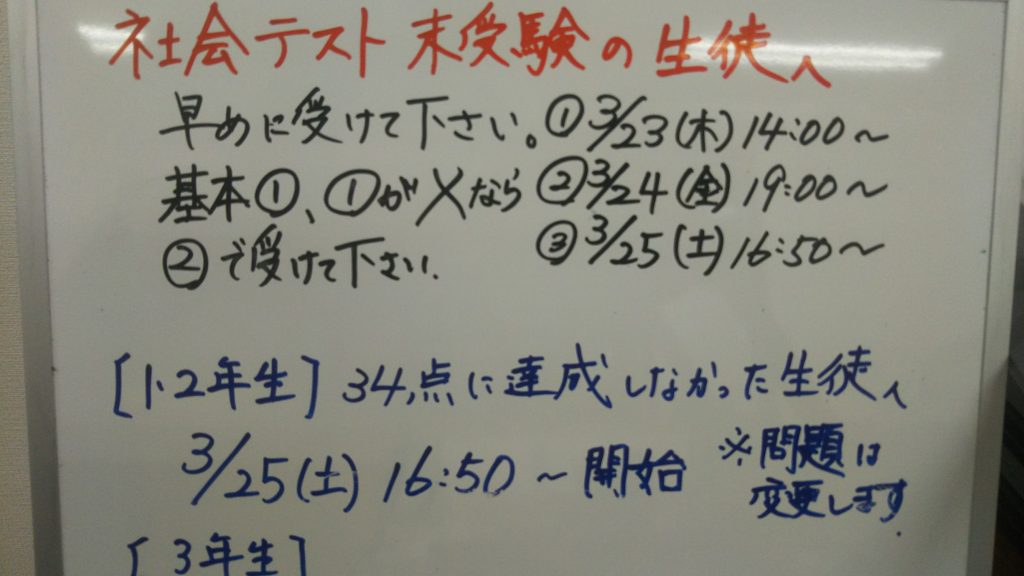 社会テスト 末受験の生徒へ
早めに受けて下さい。①3/23(木) 14:00～
基本①、①が〤なら ②3/24(金) 19:00～
②で受けて下さい. ③3/25(土) 16:50～
[1·2年生] 34点に達成しなかった生徒へ
3/25(土) 16:50～開始 ※問題は
変更します.
[3年生]